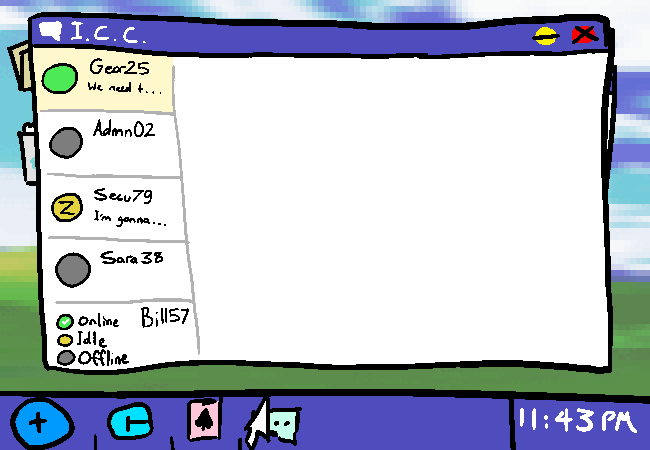 I.C.C.
Gear25
We need t...
Admn02
Secu79
I'm gonna...
Sara38
Online
Bill57
Idle
Offline
11:43 PM